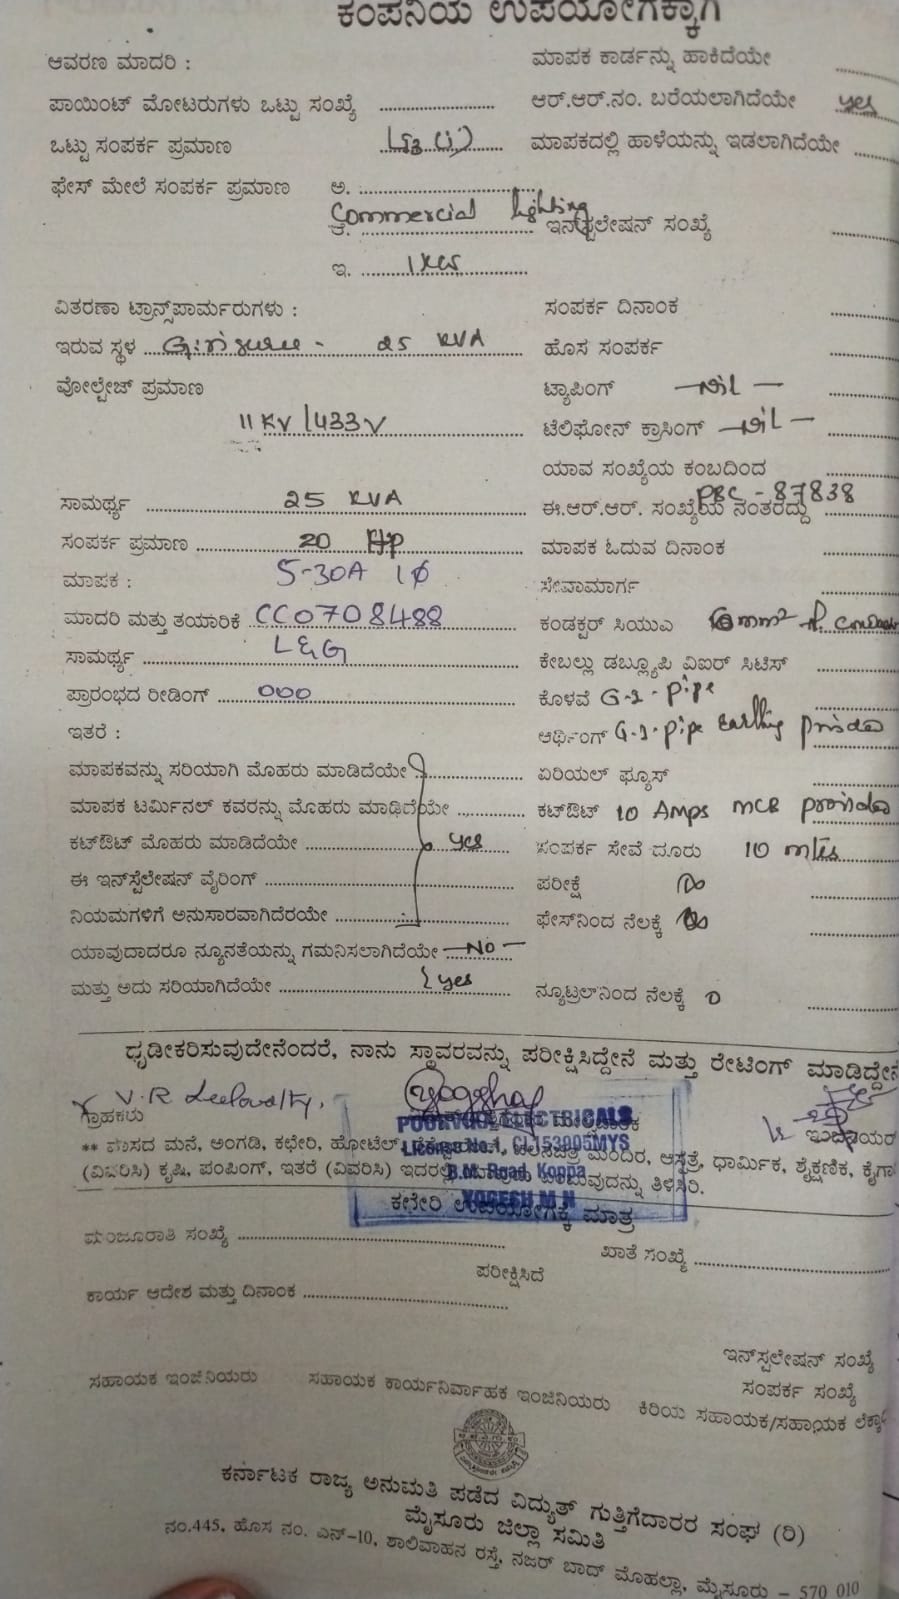 ಕಂಪನಿಯ ಉಪಯೋಗಕ್ಕಾಗಿ
ಆವರಣ ಮಾದರಿ :
ಮಾಪಕ ಕಾರ್ಡನ್ನು ಹಾಕಿದೆಯೇ
ಪಾಯಿಂಟ್ ಮೋಟರುಗಳು ಒಟ್ಟು ಸಂಖ್ಯೆ
ಆರ್.ಆರ್.ನಂ. ಬರೆಯಲಾಗಿದೆಯೇ yes
ಒಟ್ಟು ಸಂಪರ್ಕ ಪ್ರಮಾಣ
ಮಾಪಕದಲ್ಲಿ ಹಾಳೆಯನ್ನು ಇಡಲಾಗಿದೆಯೇ
ಫೇಸ್ ಮೇಲೆ ಸಂಪರ್ಕ ಪ್ರಮಾಣ ಅ.
Commercial lighting
ಇನ್‌ಸ್ಟಲೇಷನ್ ಸಂಖ್ಯೆ
ಇ. 1 KW
ವಿತರಣಾ ಟ್ರಾನ್ಸ್‌ಫಾರ್ಮರುಗಳು :
ಸಂಪರ್ಕ ದಿನಾಂಕ
ಇರುವ ಸ್ಥಳ - 25 KVA
ಹೊಸ ಸಂಪರ್ಕ
ವೋಲ್ಟೇಜ್ ಪ್ರಮಾಣ
ಟ್ಯಾಪಿಂಗ್ — Nil —
11 KV/433V
ಟೆಲಿಫೋನ್ ಕ್ರಾಸಿಂಗ್ — Nil —
ಯಾವ ಸಂಖ್ಯೆಯ ಕಂಬದಿಂದ
ಸಾಮರ್ಥ್ಯ 25 KVA
ಈ.ಆರ್.ಆರ್. ಸಂಖ್ಯೆಯ ನಂತರದ್ದು PBC - 87838
ಸಂಪರ್ಕ ಪ್ರಮಾಣ 20 HP
ಮಾಪಕ ಓದುವ ದಿನಾಂಕ
ಮಾಪಕ : 5-30A 1Φ
ಸೇವಾಮಾರ್ಗ
ಮಾದರಿ ಮತ್ತು ತಯಾರಿಕೆ CC0708488
ಕಂಡಕ್ಟರ್ ಸಿಯುಎ
ಸಾಮರ್ಥ್ಯ L&G
ಕೇಬಲ್ಲು ಡಬ್ಲ್ಯೂಪಿ ವಿಐರ್ ಸಿಟಿಸ್
ಪ್ರಾರಂಭದ ರೀಡಿಂಗ್ 000
ಕೊಳವೆ G-I-pipe
ಇತರೆ :
ಆರ್ಥಿಂಗ್ G-I-pipe Earthing provided
ಮಾಪಕವನ್ನು ಸರಿಯಾಗಿ ಮೊಹರು ಮಾಡಿದೆಯೇ
ಏರಿಯಲ್ ಫ್ಯೂಸ್
ಮಾಪಕ ಟರ್ಮಿನಲ್ ಕವರನ್ನು ಮೊಹರು ಮಾಡಿದೆಯೇ
ಕಟ್‌ಔಟ್ 10 Amps MCB provided
ಕಟ್‌ಔಟ್ ಮೊಹರು ಮಾಡಿದೆಯೇ yes
ಸಂಪರ್ಕ ಸೇವೆ ದೂರು 10 mtrs
ಈ ಇನ್‌ಸ್ಟಲೇಷನ್ ವೈರಿಂಗ್
ಪರೀಕ್ಷೆ
ನಿಯಮಗಳಿಗೆ ಅನುಸಾರವಾಗಿದೆರಯೇ
ಫೇಸ್‌ನಿಂದ ನೆಲಕ್ಕೆ
ಯಾವುದಾದರೂ ನ್ಯೂನತೆಯನ್ನು ಗಮನಿಸಲಾಗಿದೆಯೇ — NO —
ಮತ್ತು ಅದು ಸರಿಯಾಗಿದೆಯೇ yes
ನ್ಯೂಟ್ರಲ್‌ನಿಂದ ನೆಲಕ್ಕೆ
ಧೃಡೀಕರಿಸುವುದೇನೆಂದರೆ, ನಾನು ಸ್ಥಾವರವನ್ನು ಪರೀಕ್ಷಿಸಿದ್ದೇನೆ ಮತ್ತು ರೇಟಿಂಗ್ ಮಾಡಿದ್ದೇನೆ
ಗ್ರಾಹಕರು
POORVIKA ELECTRICALS
License No.1, CL153905MYS
B.M. Road, Koppa
YOGESH M N
** ವಾಸದ ಮನೆ, ಅಂಗಡಿ, ಕಛೇರಿ, ಹೋಟೆಲ್ ಮಂದಿರ, ಆಸ್ಪತ್ರೆ, ಧಾರ್ಮಿಕ, ಶೈಕ್ಷಣಿಕ,
(ವಿವರಿಸಿ) ಕೃಷಿ, ಪಂಪಿಂಗ್, ಇತರೆ (ವಿವರಿಸಿ) ತಿಳಿಸಿರಿ.
ಕಛೇರಿ ಉಪಯೋಗಕ್ಕೆ ಮಾತ್ರ
ಮಂಜೂರಾತಿ ಸಂಖ್ಯೆ
ಖಾತೆ ಸಂಖ್ಯೆ
ಪರೀಕ್ಷಿಸಿದೆ
ಕಾರ್ಯ ಆದೇಶ ಮತ್ತು ದಿನಾಂಕ
ಇನ್‌ಸ್ಟಲೇಷನ್ ಸಂಖ್ಯೆ
ಸಂಪರ್ಕ ಸಂಖ್ಯೆ
ಸಹಾಯಕ ಇಂಜಿನಿಯರು ಸಹಾಯಕ ಕಾರ್ಯನಿರ್ವಾಹಕ ಇಂಜಿನಿಯರು ಕಿರಿಯ ಸಹಾಯಕ/ಸಹಾಯಕ
ಕರ್ನಾಟಕ ರಾಜ್ಯ ಅನುಮತಿ ಪಡೆದ ವಿದ್ಯುತ್ ಗುತ್ತಿಗೆದಾರರ ಸಂಘ (ರಿ)
ಮೈಸೂರು ಜಿಲ್ಲಾ ಸಮಿತಿ
ನಂ.445, ಹೊಸ ನಂ. ಎನ್-10, ಶಾಲಿವಾಹನ ರಸ್ತೆ, ನಜರ್ ಬಾದ್ ಮೊಹಲ್ಲಾ, ಮೈಸೂರು – 570 010